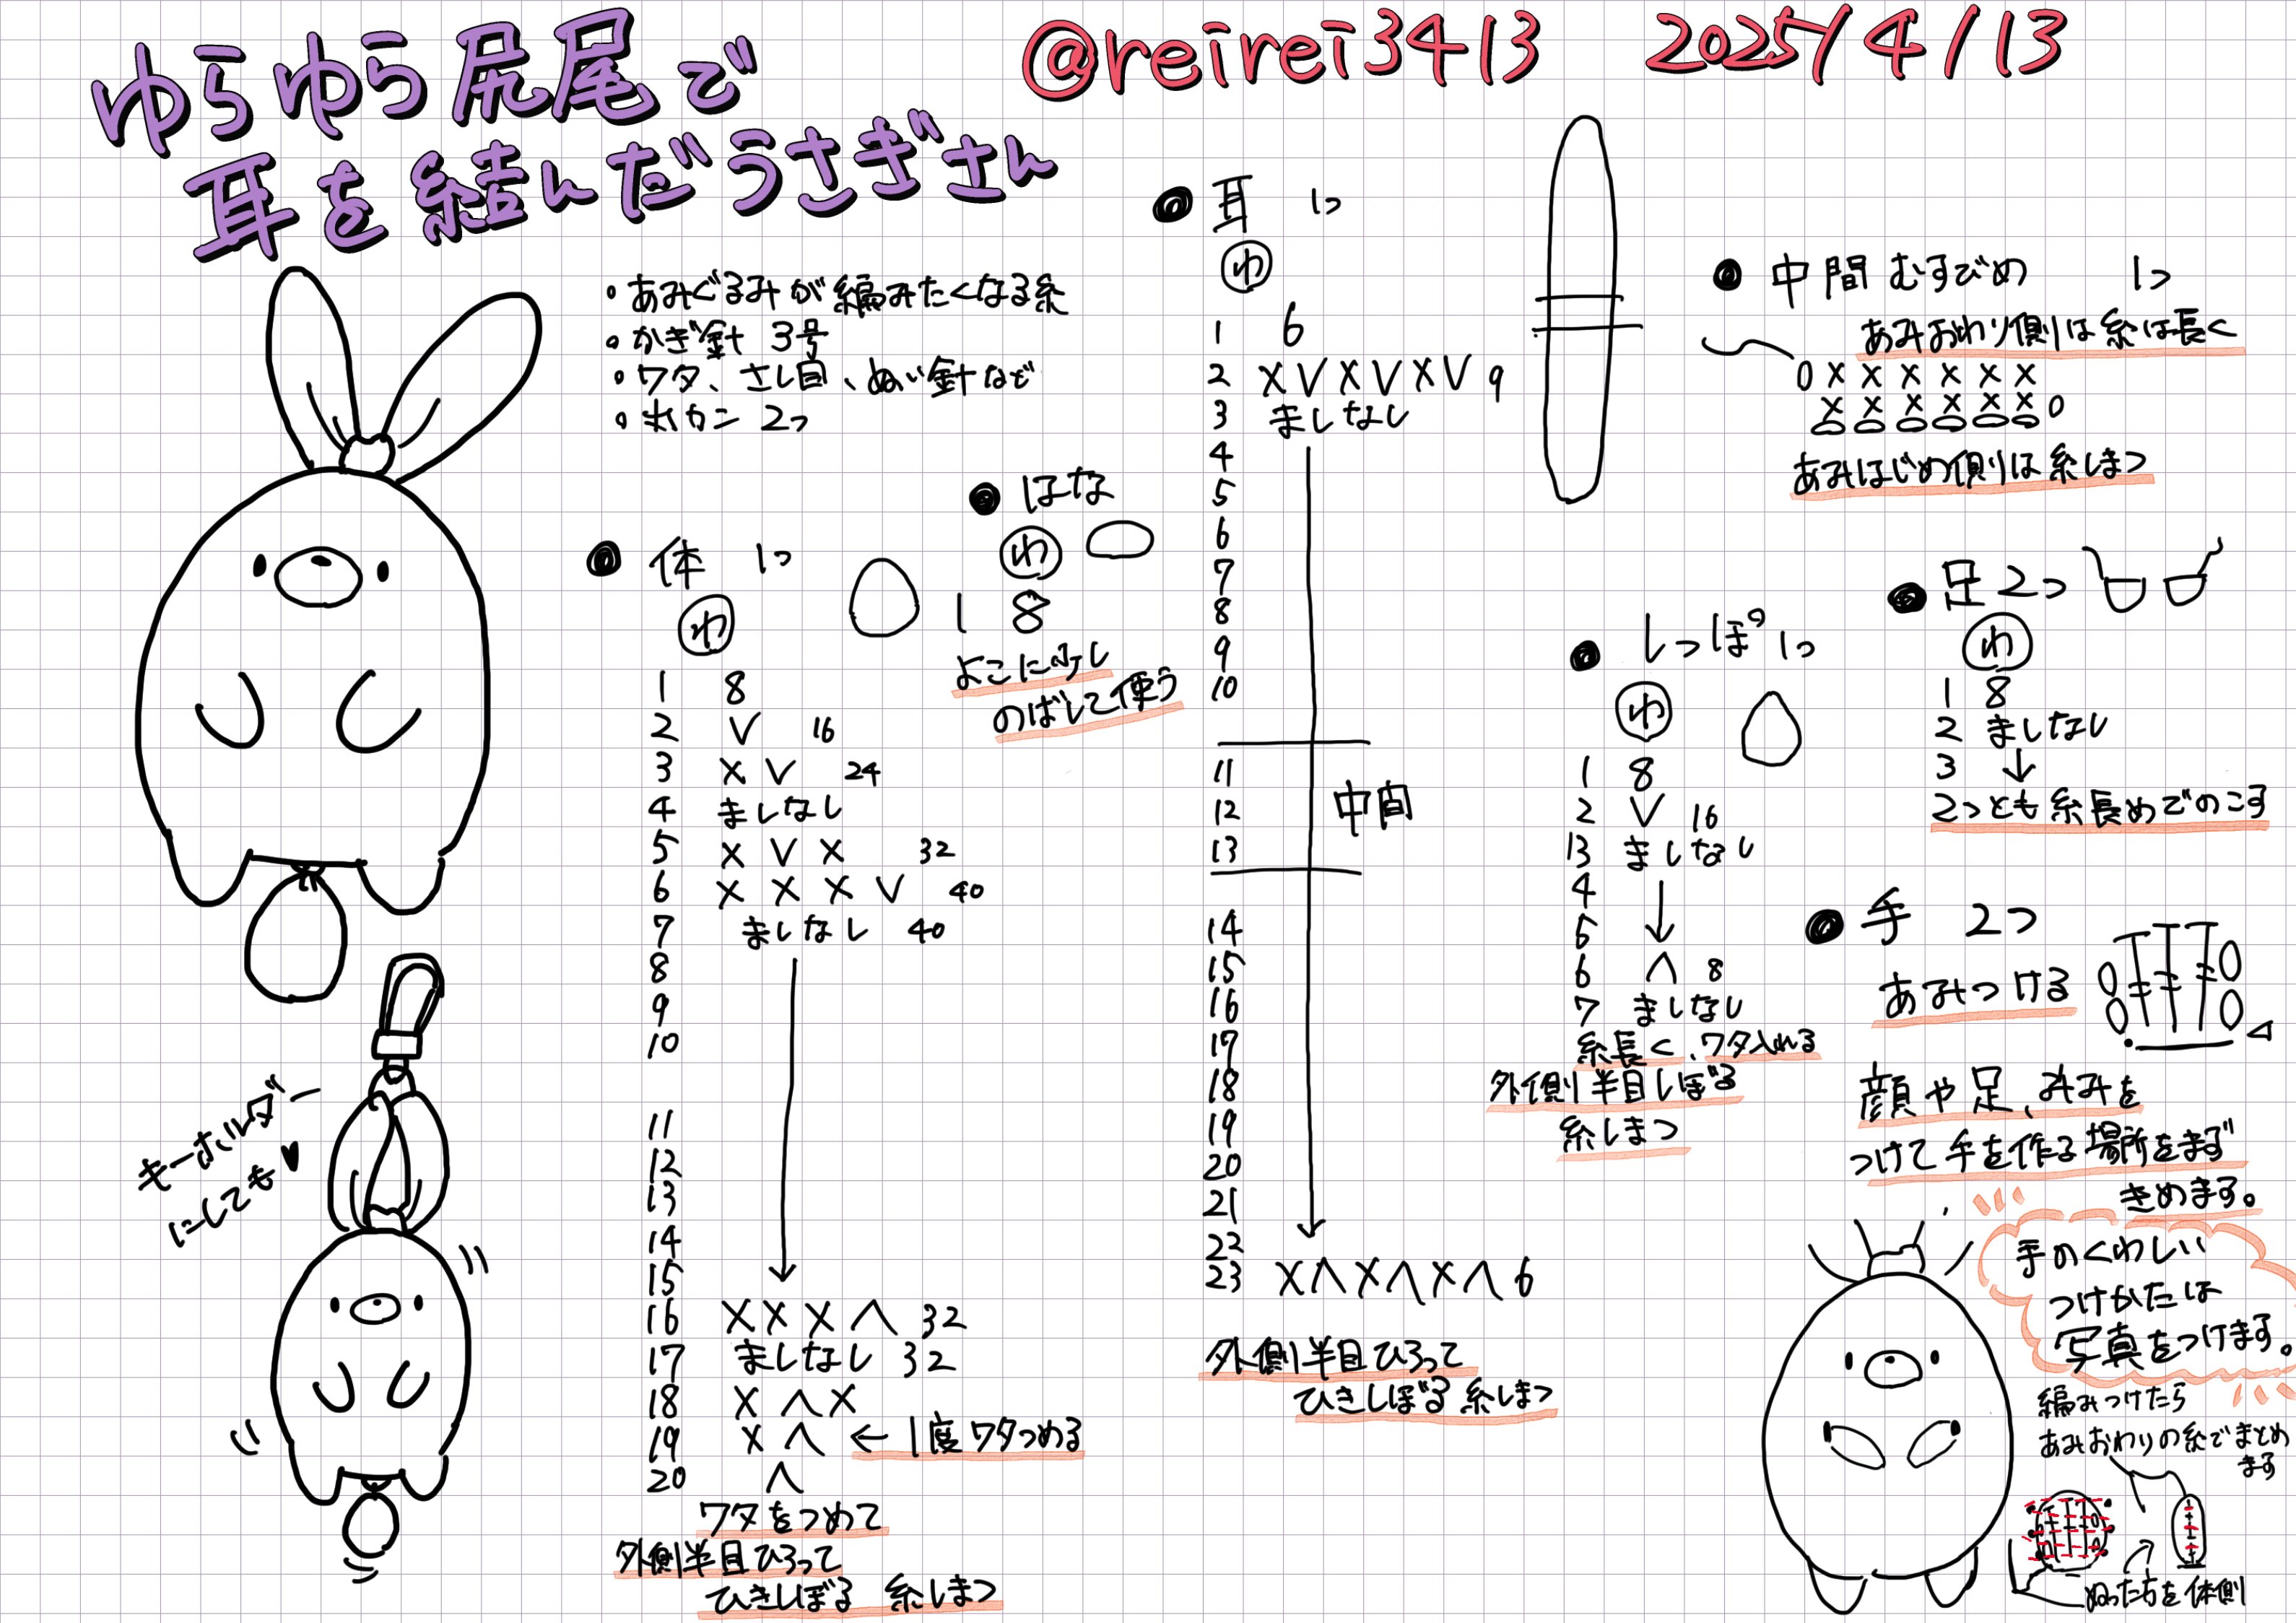 ゆらゆら尻尾で
耳を結んだうさぎさん
@reirei3413 2025/4/13
・あみぐるみが編みたくなる糸
・かぎ針 3号
・ワタ、さし目、ぬい針など
・丸カン 2つ
キーホルダー
にしても♥
● 体 1つ
わ
1 8
2 V 16
3 X V 24
4 ましなし
5 X V X 32
6 X X X V 40
7 ましなし 40
8
9
10
11
12
13
14
15
16 X X X Λ 32
17 ましなし 32
18 X Λ X
19 X Λ ← 1度ワタつめる
20 Λ
ワタをつめて
外側半目ひろって
ひきしぼる 糸しまつ
● はな
わ
1 8
よこに少し
のばして使う
● 耳 1つ
わ
1 6
2 X V X V X V 9
3 ましなし
4
5
6
7
8
9
10
11
12 中間
13
14
15
16
17
18
19
20
21
22
23 X Λ X Λ X Λ 6
外側半目ひろって
ひきしぼる 糸しまつ
● 中間 むすびめ 1つ
あみおわり側は糸は長く
0 X X X X X X
X X X X X X 0
あみはじめ側は糸しまつ
● しっぽ 1つ
わ
1 8
2 V 16
3 ましなし
4
5
6 Λ 8
7 ましなし
糸長く、ワタ入れる
外側半目しぼる
糸しまつ
● 足 2つ
わ
1 8
2 ましなし
3 ↓
2つとも糸長めでのこす
● 手 2つ
あみつける
顔や足、みみを
つけて手を作る場所をまず
きめます。
手のくわしい
つけかたは
写真をつけます。
編みつけたら
あみおわりの糸でまとめ
ます
ぬった方を体側